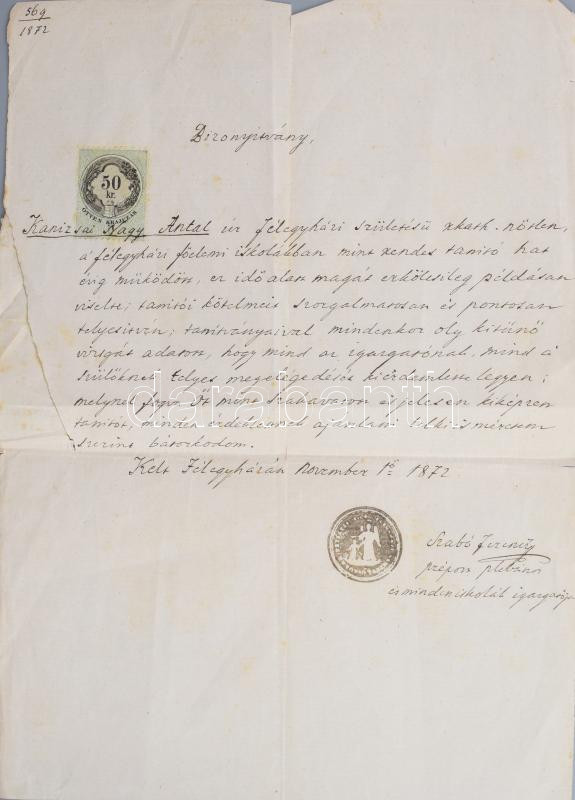 569
1872
Bizonyitvány,
50
kr.
ÖTVEN KRAJCZÁR
Kanizsai Nagy Antal úr Félegyházi születésü r.kath. nőtlen,
a félegyházi főelemi iskolákban mint rendes tanitó hat
évig müködött, ez idő alatt magát erkölcsileg példásan
viselte; tanitói kötelmeit szorgalmatosan és pontosan
telyesitven; tanitványaival mindenkor oly kitünő
vizsgát adatott, hogy mind az igazgatónak, mind a
szülőknek telyes megelégedését kiérdemlette legyen;
melynél fogva Őt mint szakavatott és jelesen kiképzett
tanitót, minden érdeklettnek ajánlani lelkiismeretem
szerint bátorkodom.
Kelt Félegyházán November 1én 1872
Szabó Ferencz
prépost plébános
és minden iskolák igazgatója
darabanth